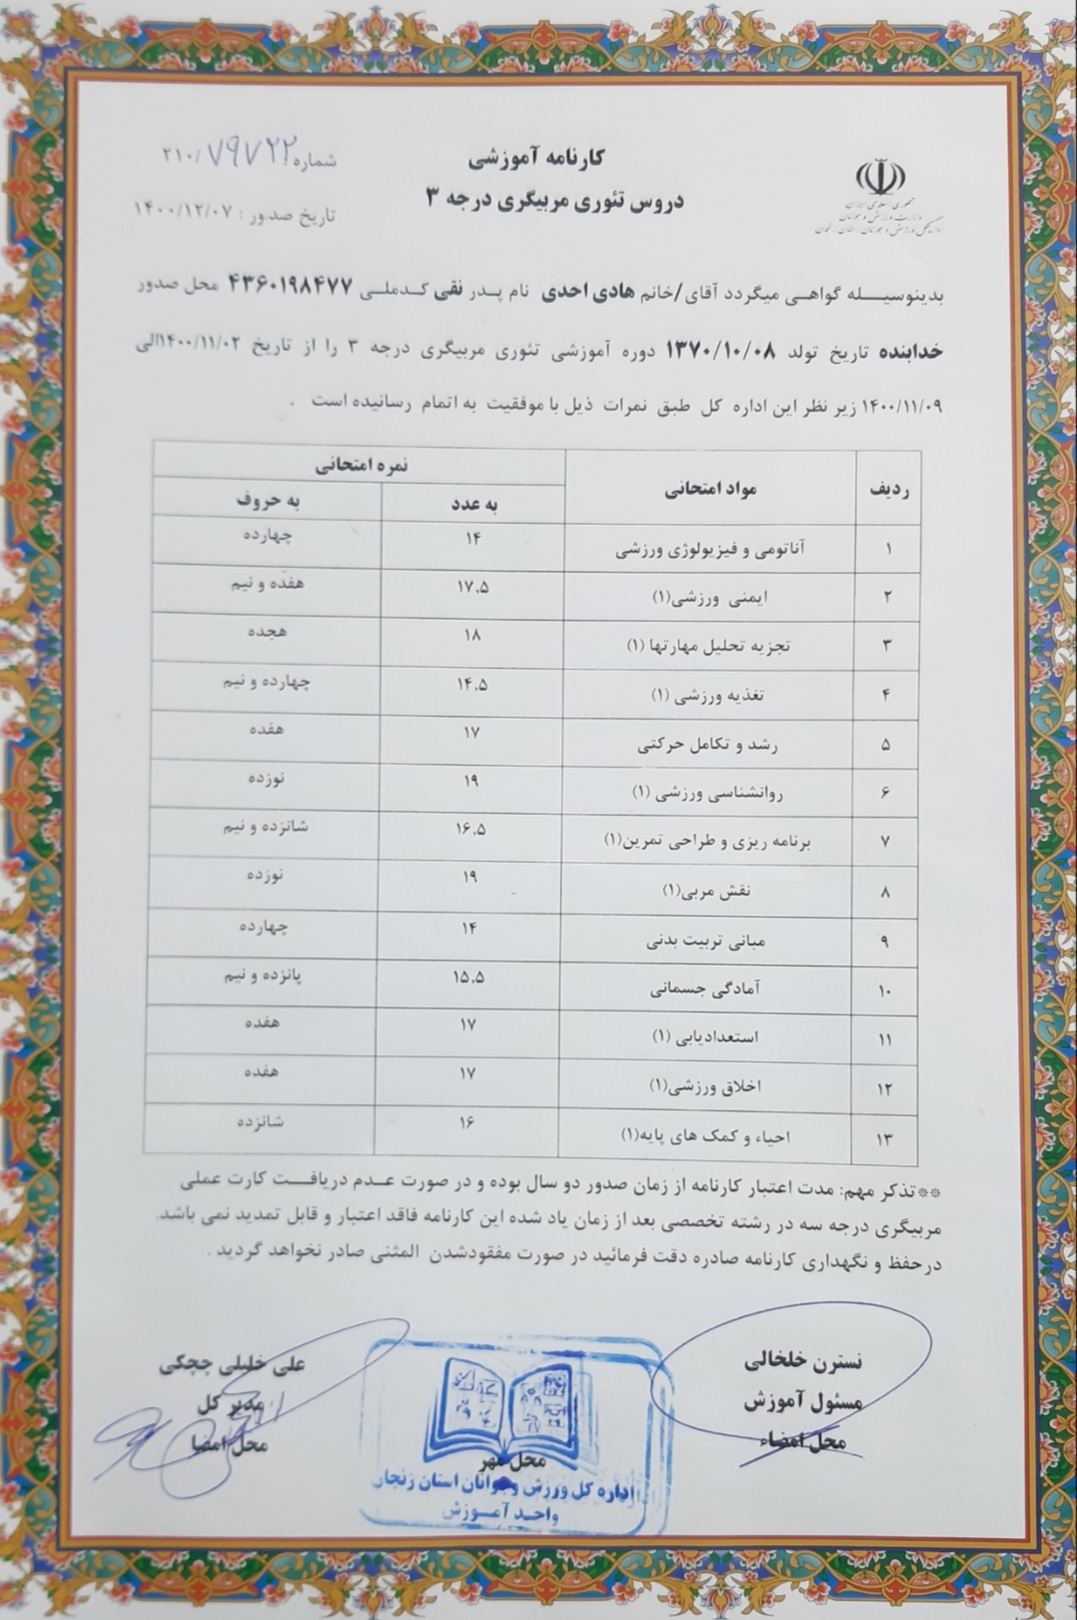 جمهوری اسلامی ایران
وزارت ورزش و جوانان
اداره کل ورزش و جوانان استان زنجان
کارنامه آموزشی
دروس تئوری مربیگری درجه ۳
شماره: ۲۱۰/۷۹۷۲۲
تاریخ صدور : ۱۴۰۰/۱۲/۰۷
بدینوسیله گواهی میگردد آقای/خانم هادی احدی نام پدر نقی کدملی ۴۳۶۰۱۹۸۴۷۷ محل صدور
خدابنده تاریخ تولد ۱۳۷۰/۱۰/۰۸ دوره آموزشی تئوری مربیگری درجه ۳ را از تاریخ ۱۴۰۰/۱۱/۰۲الی
۱۴۰۰/۱۱/۰۹ زیر نظر این اداره کل طبق نمرات ذیل با موفقیت به اتمام رسانیده است .
ردیف مواد امتحانی نمره امتحانی
به عدد به حروف
۱ آناتومی و فیزیولوژی ورزشی ۱۴ چهارده
۲ ایمنی ورزشی(۱) ۱۷.۵ هفده و نیم
۳ تجزیه تحلیل مهارتها (۱) ۱۸ هجده
۴ تغذیه ورزشی (۱) ۱۴.۵ چهارده و نیم
۵ رشد و تکامل حرکتی ۱۷ هفده
۶ روانشناسی ورزشی (۱) ۱۹ نوزده
۷ برنامه ریزی و طراحی تمرین(۱) ۱۶.۵ شانزده و نیم
۸ نقش مربی(۱) ۱۹ نوزده
۹ مبانی تربیت بدنی ۱۴ چهارده
۱۰ آمادگی جسمانی ۱۵.۵ پانزده و نیم
۱۱ استعدادیابی (۱) ۱۷ هفده
۱۲ اخلاق ورزشی(۱) ۱۷ هفده
۱۳ احیاء و کمک های پایه(۱) ۱۶ شانزده
**تذکر مهم: مدت اعتبار کارنامه از زمان صدور دو سال بوده و در صورت عدم دریافت کارت عملی
مربیگری درجه سه در رشته تخصصی بعد از زمان یاد شده این کارنامه فاقد اعتبار و قابل تمدید نمی باشد.
درحفظ و نگهداری کارنامه صادره دقت فرمائید در صورت مفقودشدن المثنی صادر نخواهد گردید .
نسترن خلخالی
مسئول آموزش
محل امضاء
محل مهر
اداره کل ورزش و جوانان استان زنجان
واحد آموزش
علی خلیلی چچکی
مدیر کل
محل امضا